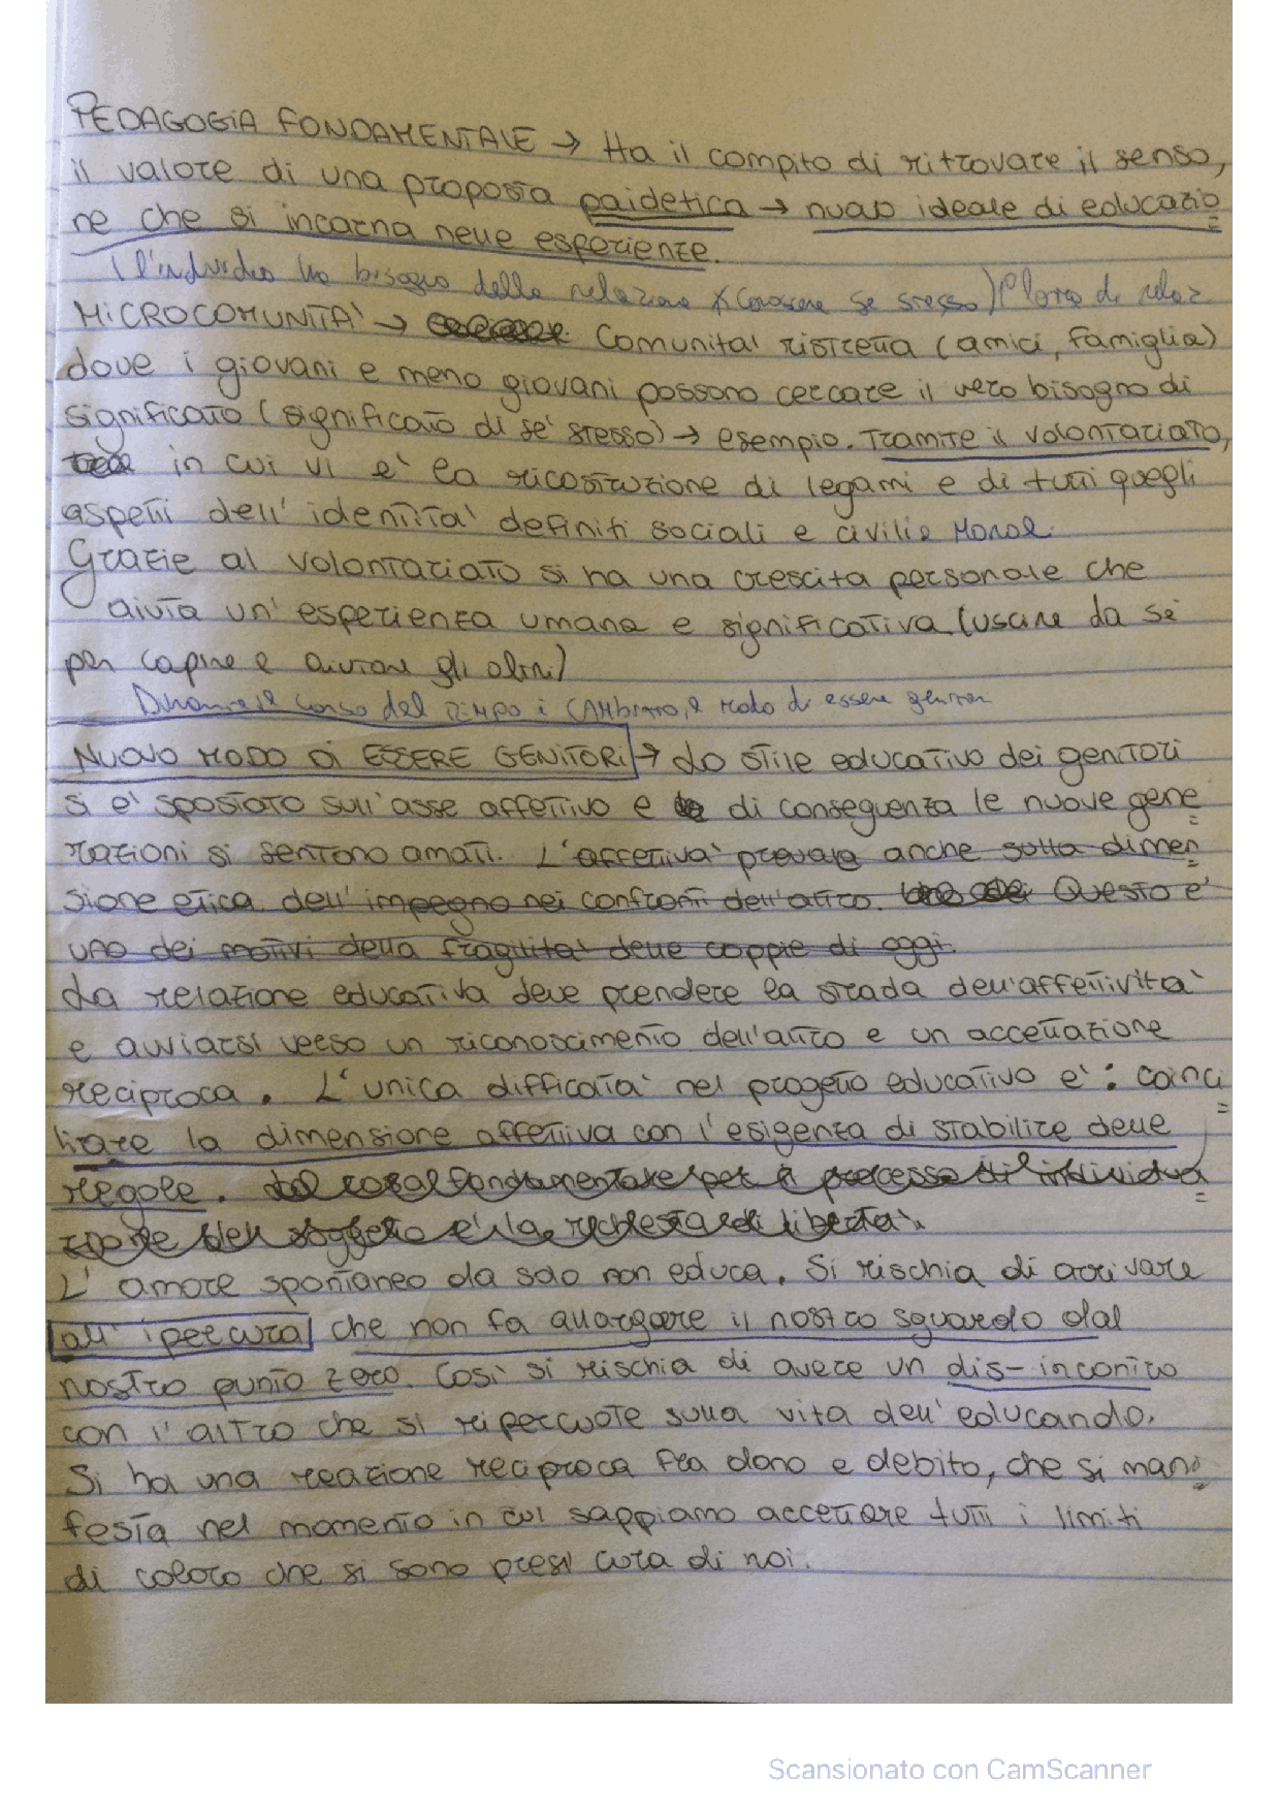 PEDAGOGIA FONDAMENTALE → Ha il compito di ritrovare il senso,
il valore di una proposta paidetica → nuovo ideale di educazio
ne che si incarna nelle esperienze.
(l'individuo ha bisogno della relazione x conoscere se stesso)
MICROCOMUNITA' → Comunita' ristretta (amici, famiglia)
dove i giovani e meno giovani possono cercare il vero bisogno di
significato (significato di se' stesso) → esempio. Tramite il volontariato,
in cui vi e' la ricostruzione di legami e di tutti quegli
aspetti dell'identita' definiti sociali e civili e Moral
Grazie al volontariato si ha una crescita personale che
aiuta un'esperienza umana e significativa (uscire da se
per capire e aiutare gli altri)
il corso del tempo è CAMBIATO il modo di essere genitori
NUOVO MODO DI ESSERE GENITORI → Lo stile educativo dei genitori
si e' spostato sull'asse affettivo e di conseguenza le nuove gene
razioni si sentono amati. L'affettiva' prevale anche sulla dimen
sione etica dell'impegno nei confronti dell'altro. Questo e'
uno dei motivi della fragilita' delle coppie di oggi.
La relazione educativa deve prendere la strada dell'affettivita'
e avviarsi verso un riconoscimento dell'altro e un accettazione
reciproca. L'unica difficolta' nel progetto educativo e': conci
liare la dimensione affettiva con l'esigenza di stabilire delle
regole. fondamentale per il processo di individua
zione del soggetto e' la richiesta di liberta'.
L'amore spontaneo da solo non educa. Si rischia di arrivare
all'ipercura che non fa allargare il nostro sguardo dal
nostro punto zero. Cosi' si rischia di avere un dis-incontro
con l'altro che si ripercuote sulla vita dell'educando.
Si ha una reazione reciproca fra dono e debito, che si mani
festa nel momento in cui sappiamo accettare tutti i limiti
di coloro che si sono presi cura di noi.
Scansionato con CamScanner